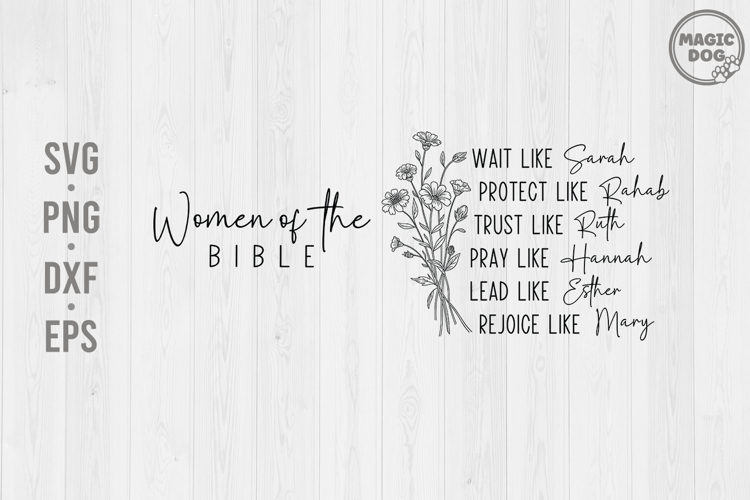 MAGIC
DOG
SVG
PNG
DXF
EPS
Women of the
BIBLE
WAIT LIKE Sarah
PROTECT LIKE Rahab
TRUST LIKE Ruth
PRAY LIKE Hannah
LEAD LIKE Esther
REJOICE LIKE Mary